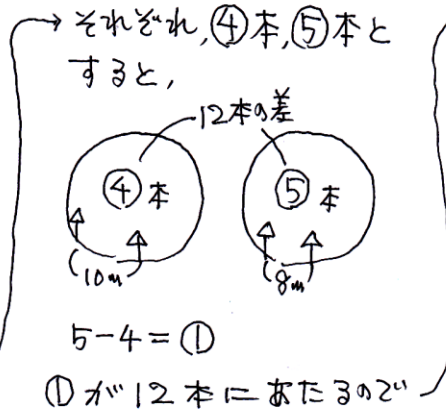 それぞれ,④本,⑤本と
すると,
12本の差
④本
⑤本
10m
8m
5-4=①
①が12本にあたるので